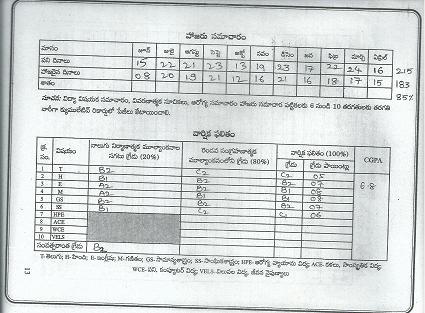 హాజరు సమాచారం
మాసం జూన్ జులై ఆగస్టు సెప్టె అక్టో నవం డిసెం జన ఫిబ్ర మార్చి ఏప్రిల్
పని దినాలు 15 22 21 23 13 19 23 17 22 24 16 215
హాజరైన దినాలు 08 20 19 21 12 16 21 16 18 17 15 183
శాతం 85%
సూచన: విద్యా విషయక సమాచారం, వివరణాత్మక సూచికలు, ఆరోగ్య సమాచారం హాజరు సమాచార పట్టికలకు 6 నుండి 10 తరగతులకు తరగతి
వారీగా క్యుములేటివ్ రికార్డులో పేజీలు కేటాయించాలి.
వార్షిక ఫలితం
క్ర. సం. విషయం నాలుగు నిర్మాణాత్మక మూల్యాంకనాల సగటు గ్రేడు (20%) రెండవ సంగ్రహణాత్మక మూల్యాంకనంలోని గ్రేడు (80%) వార్షిక ఫలితం (100%) CGPA
గ్రేడు గ్రేడు పాయింట్లు
1 T B2 C2 C2 05
2 H B1 B2 B2 07 6.8
3 E A2 B2 B1 08
4 M A2
5 GS B1 B1 08
6 SS B1 B2 B2 07
7 HPE C2 C1 06
8 ACE
9 WCE
10 VELS
సంవత్సరాంత గ్రేడు B2
T-తెలుగు; H-హిందీ; E-ఇంగ్లీషు; M-గణితం; GS-సామాన్యశాస్త్రం; SS-సాంఘికశాస్త్రం; HPE-ఆరోగ్య వ్యాయామ విద్య; ACE-కళలు, సాంస్కృతిక విద్య;
WCE-పని, కంప్యూటర్ విద్య; VELS-విలువల విద్య, జీవన నైపుణ్యాలు
13